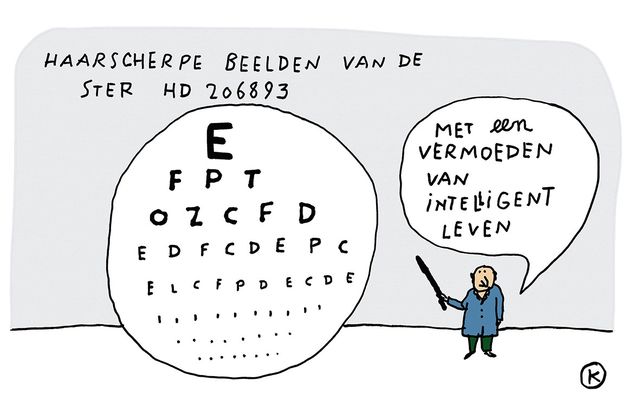 HAARSCHERPE BEELDEN VAN DE
STER HD 206893
E
F P T
O Z C F D
E D F C D E P C
E L C F P D E C D E
MET een
VERMOEDEN
VAN
iNTELLiGENT
LEVEN
K